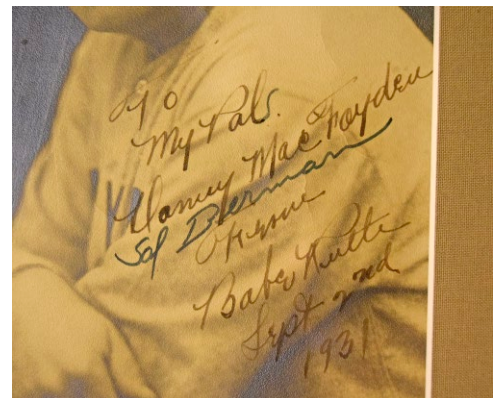 To
My Pal.
Danny MacFayden
Sol Bierman
From
Babe Ruth
Sept 2nd
1931